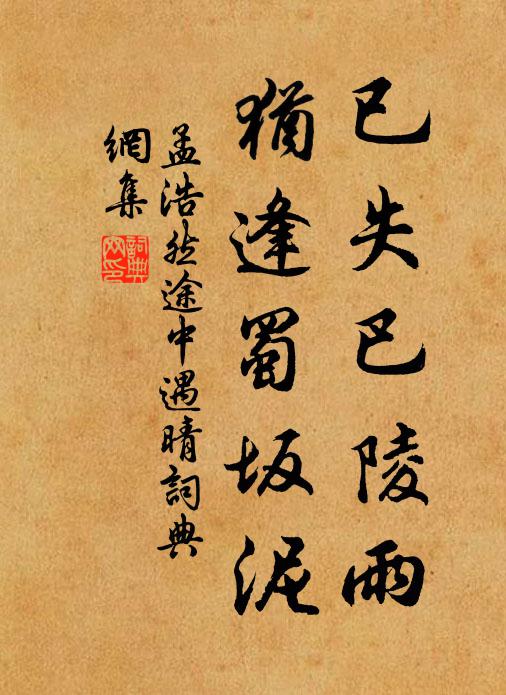 已失巴陵雨
猶逢蜀坂泥
孟浩然途中遇晴詞典
網集
詞典
网印